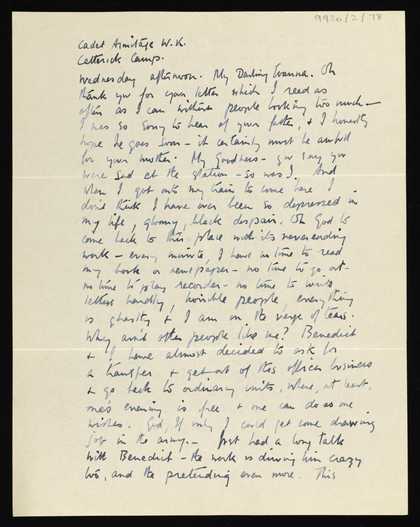 9920/2/78
Cadet Armitage W.K.
Catterick Camp.
Wednesday afternoon. My Darling Ivanna. Oh
thank you for your letter which I read as
often as I can without people looking too much —
I was so sorry to hear of your father, & I honestly
hope he goes soon – it certainly must be awful
for your mother. My Goodness – you say you
were sad at the station – so was I. And
when I got onto my train to come here I
don't think I have ever been so depressed in
my life, gloomy, black despair. Oh God to
come back to this place with its neverending
work – every minute, I have no time to read
my book or newspaper – no time to go out –
no time to play recorder – no time to write
letters hardly, horrible people, everything
is ghastly & I am on the verge of tears.
Why aren't other people like me? Benedict
& I have almost decided to ask for
a transfer & get out of this officer business
& go back to ordinary units, where, at least,
ones evening is free & one can do as one
wishes. God, if only I could get some drawing
job in the army. – Just had a long talk
with Benedict – the work is driving him crazy
too, and the pretending even more. This